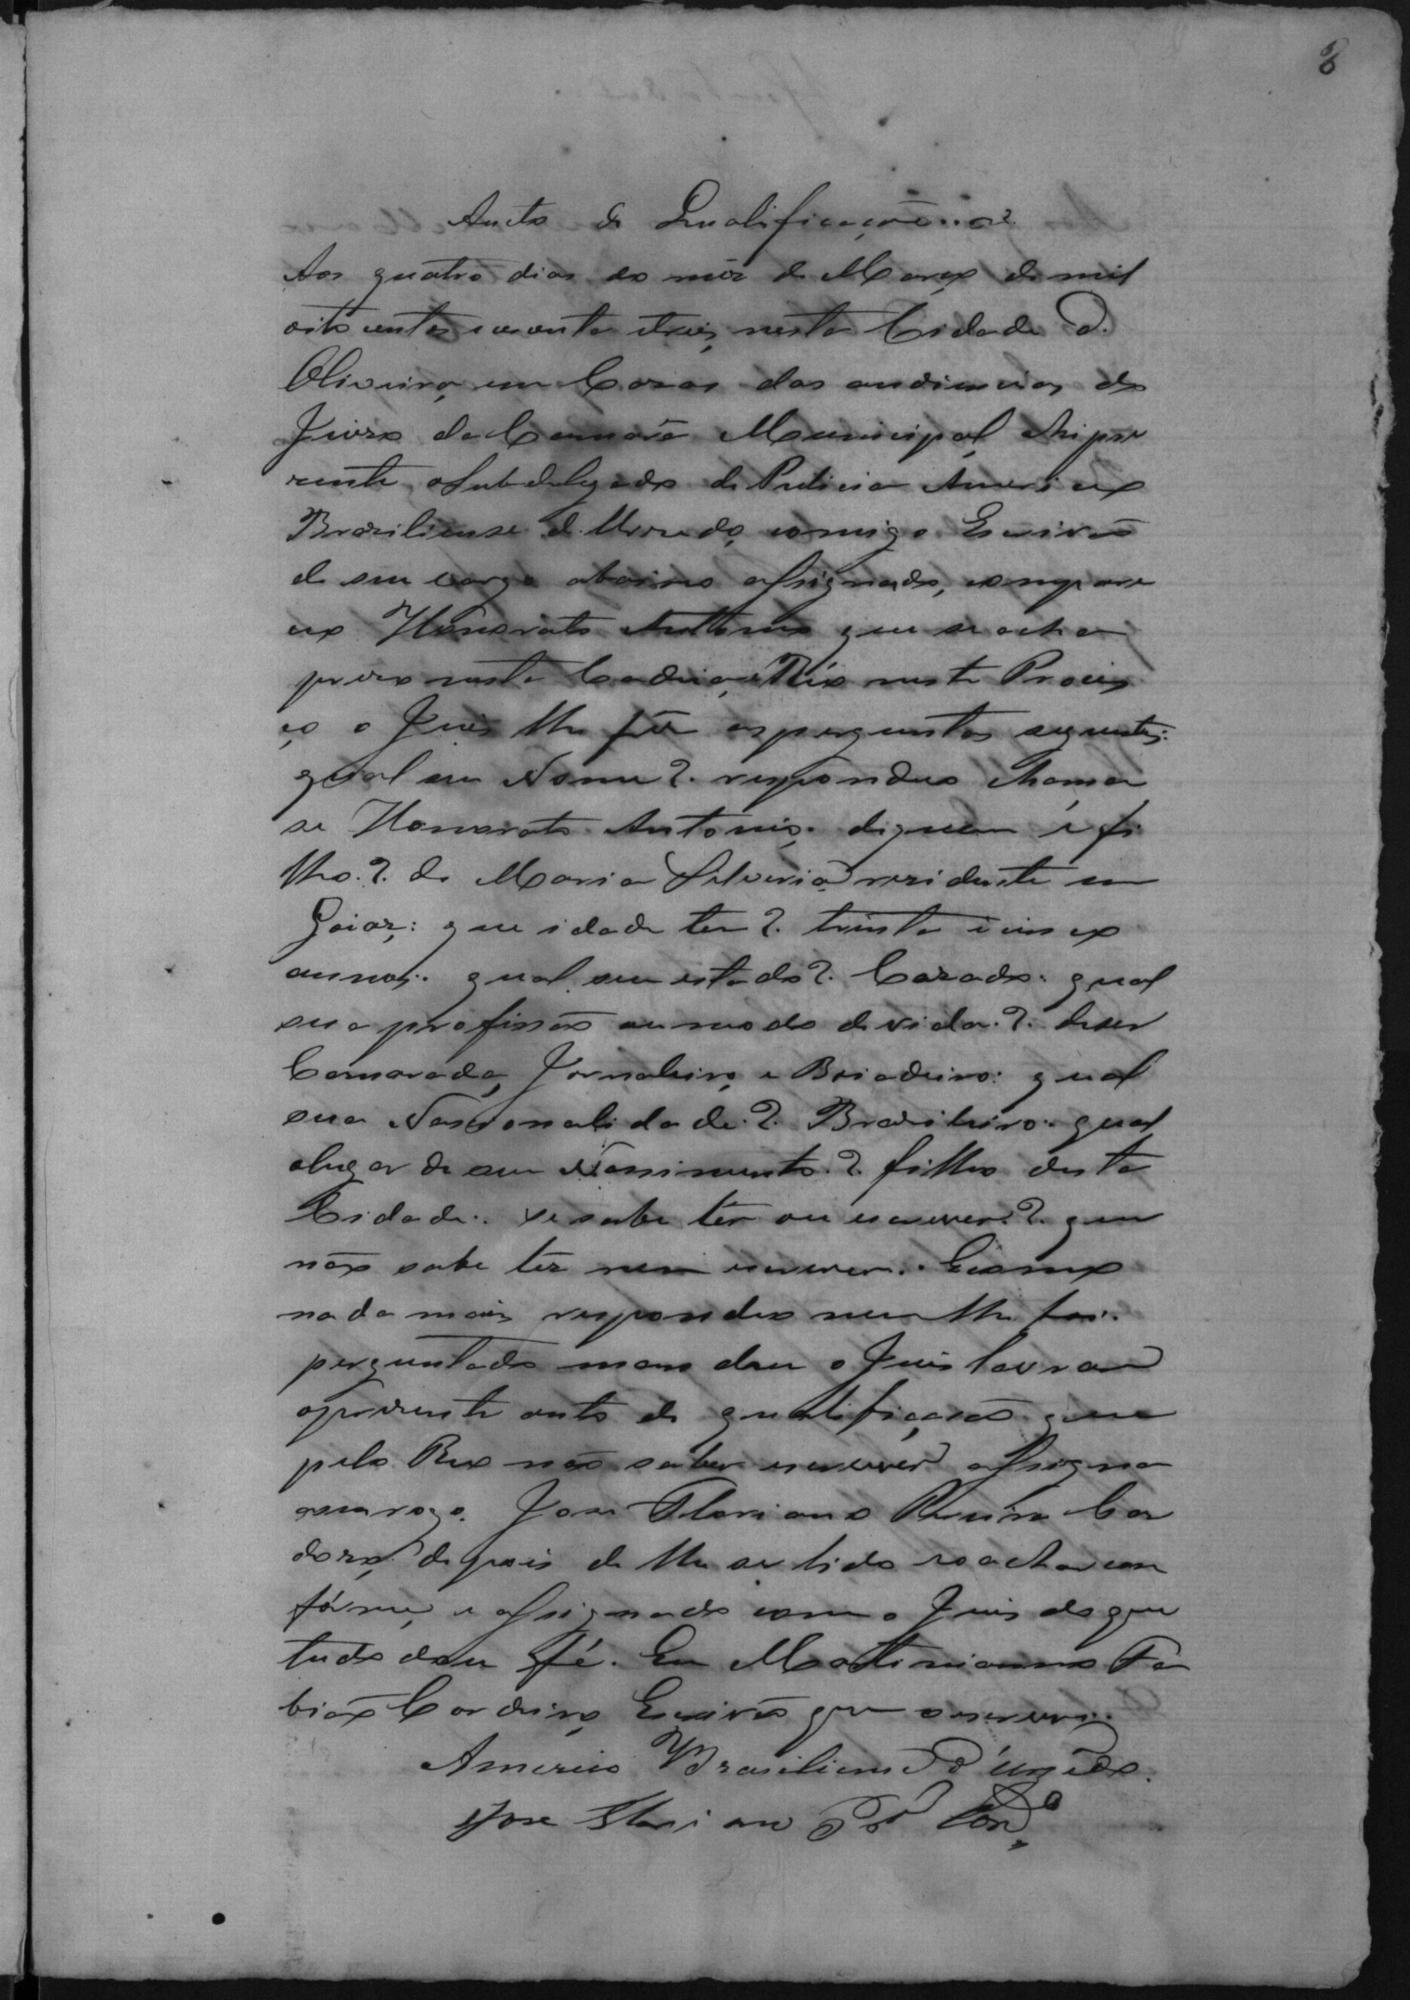 8
Auto de Qualificação
Aos quatro dias do mêz de Março de mil
oito centos e noventa e treis, nesta Cidade d.
Oliveira, em Cazas das audiencias do
Juizo da Camara Municipal, ahi prez
rente, o Subdelegado de Policia Americo
Braziliense d. comigo Escrivão
de seu cargo abaixo assignado, compare
ceo Honorato Antonio que se acha
prezo nesta Cadeia, Réo neste Proces
ço o Juis lhe fêz as perguntas seguintes:
qual seu Nome? respondeo chama
se Honorato Antonio. diquem é fi
lho.? de Maria Silveria rezidente em
Goiaz: que idade tem? trinta i cinco
annos: qual seu estado? Cazado: qual
sua profissão ou modo de vida.? de ser
Camarada, Jornaleiro, e Boiadeiro: qual
sua Nascionalidade.? Brazileiro: qual
o lugar de seu Nassimento.? filho desta
Cidade: se sabe lêr ou escrever? que
não sabe lêr nem escrever. E como
nada mais respondeo nem lhe foi
perguntado mandou o Juis lavrar
o prezente auto de qualificação que
pelo Reo não saber escrever assigna
a seu rogo. José Floriano Pereira Car
dozo, depois de lhe ser lido e o achar con
fórme, e assignado com o Juis do que
tudo dou fé. Eu Martiniano Fa
bião Cordeiro, Escrivão que o escrevi.
Americo Braziliense
Jose Floriano Pr.ª Card.º